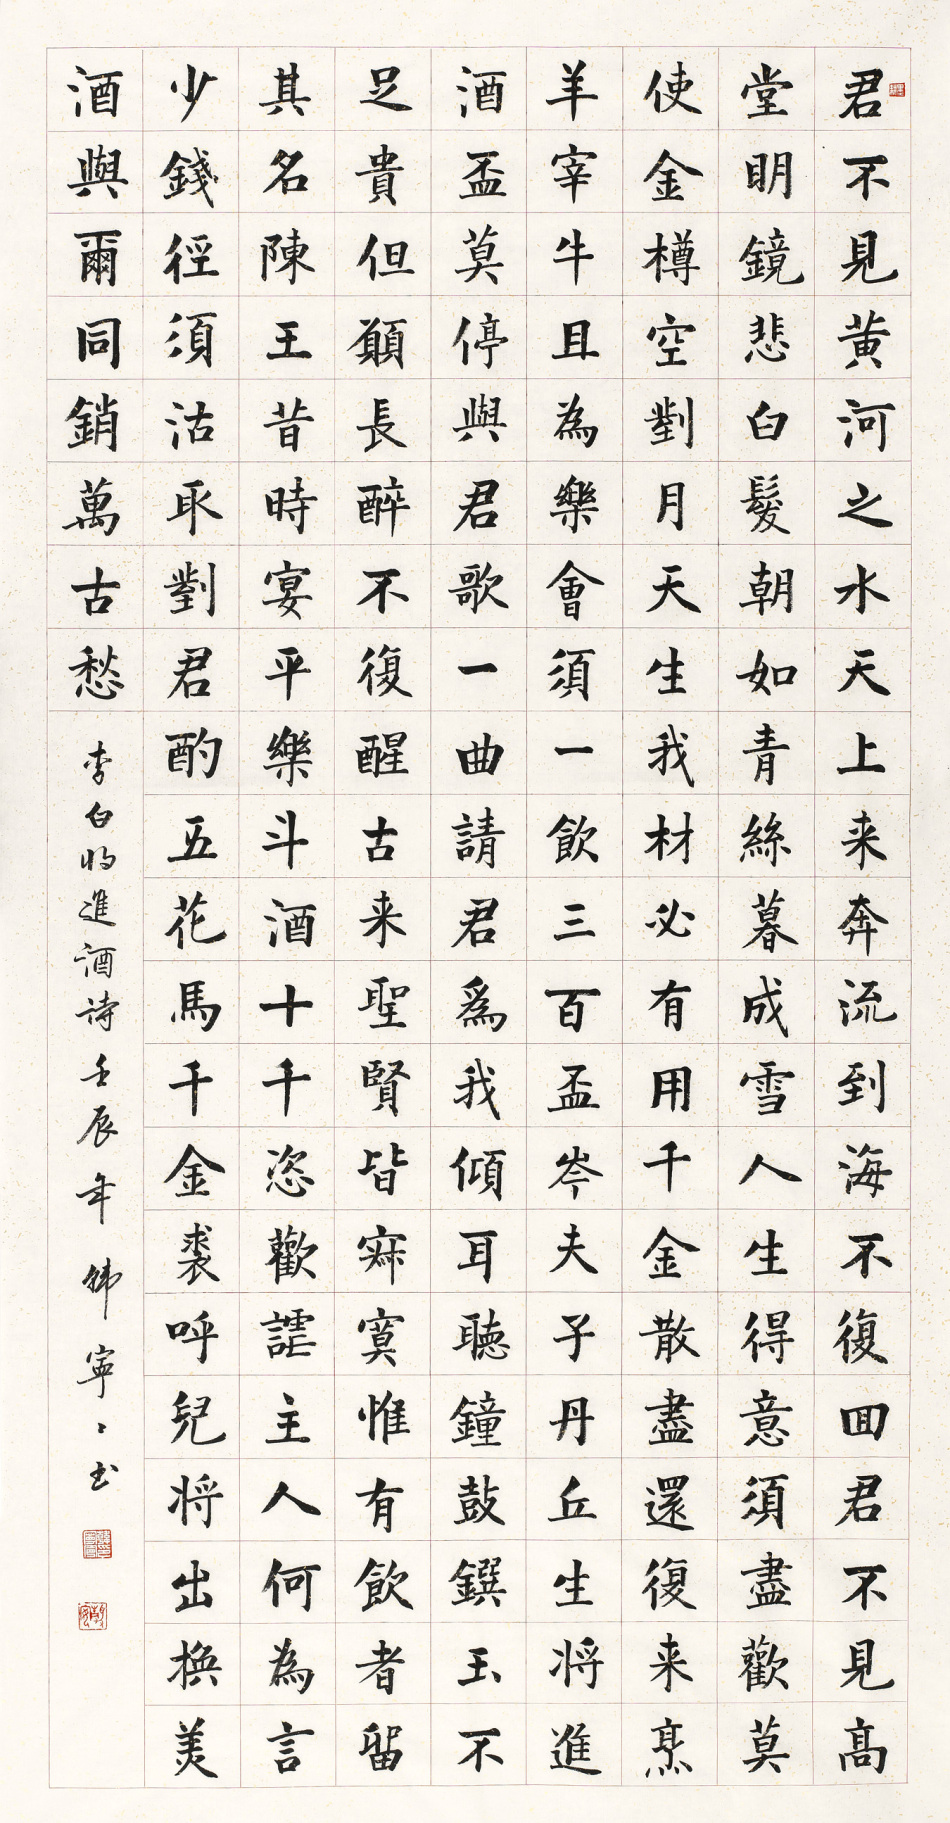 君不見黄河之水天上来奔流到海不復回君不見高
堂明鏡悲白髮朝如青絲暮成雪人生得意須盡歡莫
使金樽空對月天生我材必有用千金散盡還復来烹
羊宰牛且為樂會須一飲三百盃岑夫子丹丘生将進
酒盃莫停與君歌一曲請君爲我傾耳聽鐘鼓饌玉不
足貴但願長醉不復醒古来聖賢皆寂寞惟有飲者留
其名陳王昔時宴平樂斗酒十千恣歡謔主人何為言
少錢徑須沽取對君酌五花馬千金裘呼兒将出換美
酒與爾同銷萬古愁
李白将進酒詩壬辰年韓寧寧書